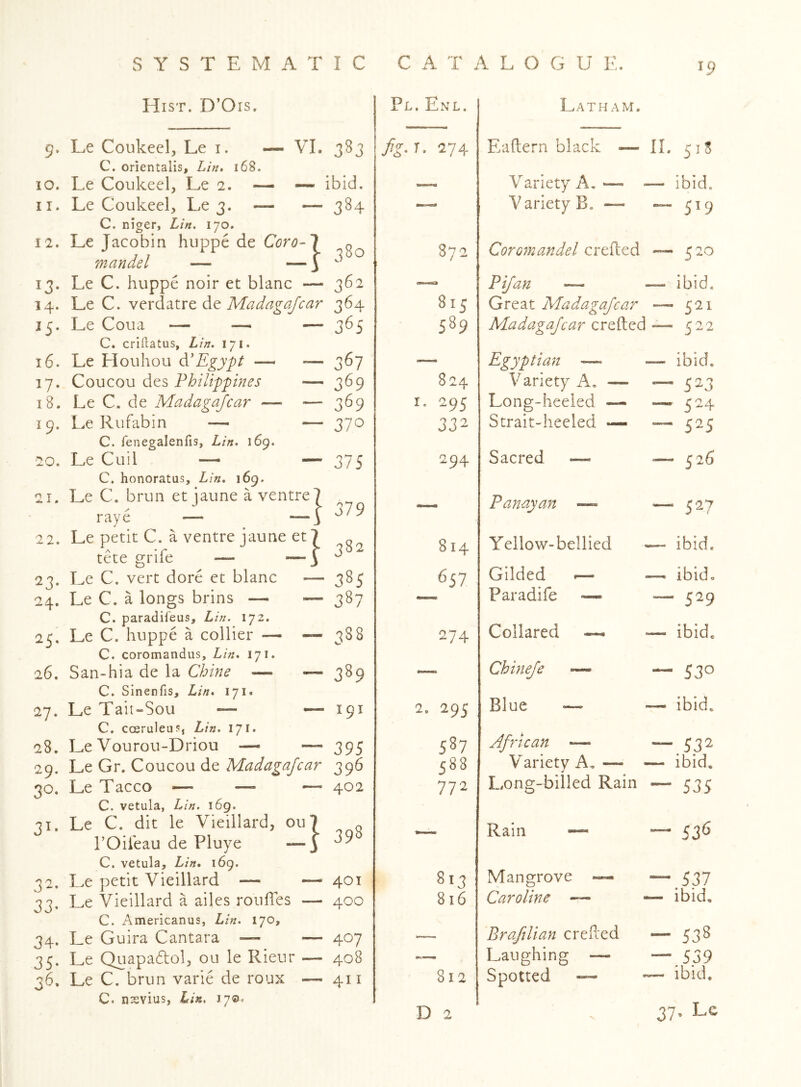 SYSTEMATIC CATALOGUE. 19
Hist. D'Ois. Pl. Enl. Latham.
9. Le Coukeel, Le 1. — VI. 383 fig. 1. 274 Eaſtern black — II. 518
C. orientalis, Lin. 168.
10. Le Coukeel, Le 2. — — ibid. — Variety A. — — ibid.
11. Le Coukeel, Le 3. — — 384 — Variety B. — — 519
C. niger, Lin. 170.
12. Le Jacobin huppé de Coro-
mandel — — } 380 872 Coromandel creſted — 520
13. Le C. huppé noir et blanc — 362 — Piſan — — ibid.
14. Le C. verdatre de Madagaſcar 364 815 Great Madagaſcar — 521
15. Le Coua — — — 365 589 Madagaſcar creſted — 522
C. criſtatus, Lin. 171.
16. Le Houhou d'Egypt — — 367 — Egyptian — — ibid.
17. Coucou des Philippines — 369 824 Variety A. — — 523
18. Le C. de Madagaſcar — — 369 1. 295 Long-heeled — — 524
19. Le Rufabin — — 370 332 Strait-heeled — — 525
C. ſenegalenſis, Lin. 169.
20. Le Cuil — — 375 294 Sacred — — 526
C. honoratus, Lin. 169.
21. Le C. brun et jaune à ventre
rayé — — } 379 — Panayan — — 527
22. Le petit C. à ventre jaune et
tête griſe — — } 382 814 Yellow-bellied — ibid.
23. Le C. vert doré et blanc — 385 657 Gilded — — ibid.
24. Le C. à longs brins — — 387 — Paradiſe — — 529
C. paradiſeus, Lin. 172.
25. Le C. huppé à collier — — 388 274 Collared — — ibid.
C. coromandus, Lin. 171.
26. San-hia de la Chine — — 389 — Chineſe — — 530
C. Sinenſis, Lin. 171.
27. Le Tait-Sou — — 191 2. 295 Blue — — ibid.
C. cœruleus, Lin. 171.
28. Le Vourou-Driou — — 395 587 African — — 532
29. Le Gr. Coucou de Madagaſcar 396 588 Variety A. — — ibid.
30. Le Tacco — — — 402 772 Long-billed Rain — 535
C. vetula, Lin. 169.
31. Le C. dit le Vieillard, ou
l'Oiſeau de Pluye — } 398 — Rain — — 536
C. vetula, Lin. 169.
32. Le petit Vieillard — — 401 813 Mangrove — — 537
33. Le Vieillard à ailes rouſſes — 400 816 Caroline — — ibid.
C. Americanus, Lin. 170,
34. Le Guira Cantara — — 407 — Braſilian creſted — 538
35. Le Quapactol, ou le Rieur — 408 — Laughing — — 539
36. Le C. brun varié de roux — 411 812 Spotted — — ibid.
C. nævius, Lin. 170.
D 2 37. Le